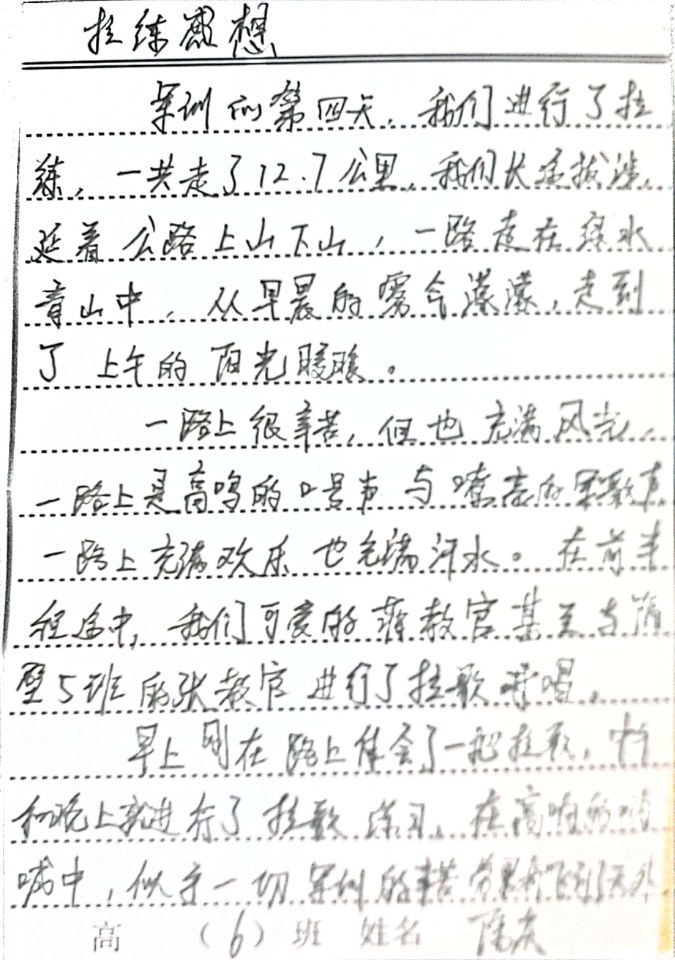 拉练感想
军训的第四天，我们进行了拉
练，一共走了12.7公里，我们长途拔涉，
延着公路上山下山，一路走在绿水
青山中，从早晨的雾气濛濛，走到
了上午的阳光暖暖。
一路上很辛苦，但也充满风光，
一路上是高鸣的口号声与嘹亮的军歌声
一路上充满欢乐也充满汗水。在前半
程途中，我们可爱的蒋教官甚至与隔
壁5班的张教官进行了拉歌对唱。
早上刚在路上体会了一把拉歌，下午
和晚上就进行了拉歌练习，在高响的呐
喊中，似乎一切军训的辛苦劳累都飞到了天外。
高 （6）班 姓名